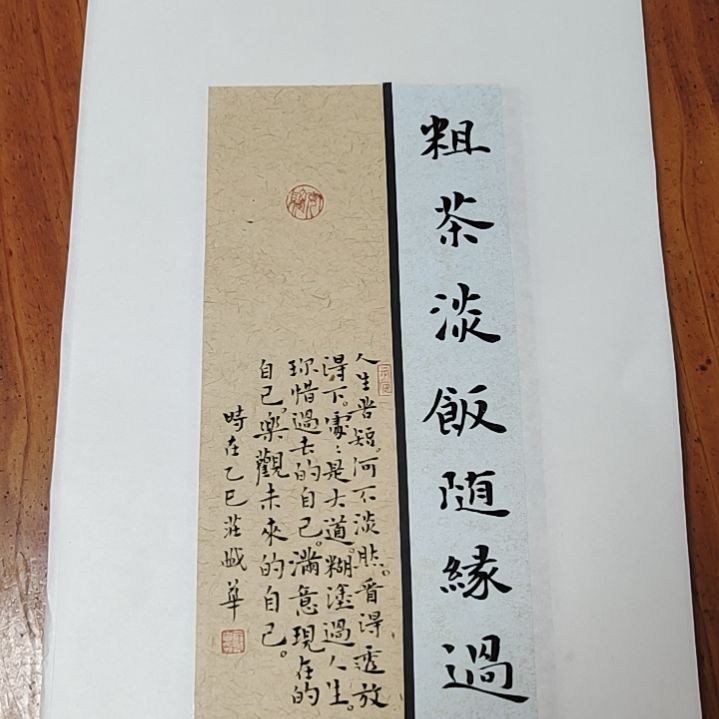 粗茶淡飯随緣過
人生苦短。何不淡然。看得透放
得下。處〻是大道。糊塗過人生。
珍惜過去的自己。滿意現在的
自己。樂觀未來的自己。
時在乙巳莊華